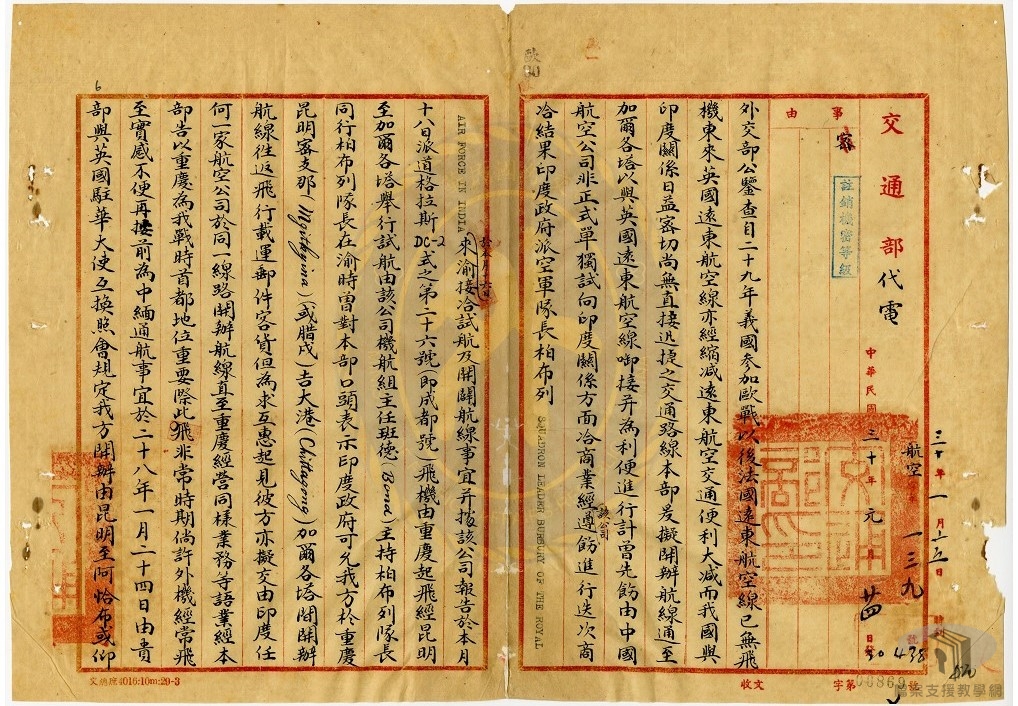 歐
交通部代電
事由
密
註銷機密等級
中華民國三十年元月廿四日
三十年一月二十五日
航空
一三九
號
438
收文 字第00869號
外交部公鑒查自二十九年義國參加歐戰以後法國遠東航空線已無飛
機東來英國遠東航空線亦經縮減遠東航空交通便利大減而我國與
印度關係日益密切尚無直接迅捷之交通路線本部爰擬開辦航線通至
加爾各塔以與英國遠東航空線啣接并為利便進行計曾先飭由中國
航空公司非正式單獨試向印度關係方面洽商業經該公司遵飭進行迭次商
洽結果印度政府派空軍隊長柏布列 SQUADRON LEADER BURBURY OF THE ROYAL
AIR FORCE IN INDIA 於本月六日來渝接洽試航及開闢航線事宜并據該公司報告於本月
十八日派道格拉斯DC-2式之第二十六號(即成都號)飛機由重慶起飛經昆明
至加爾各塔舉行試航由該公司機航組主任班德(Bond)主持柏布列隊長
同行柏布列隊長在渝時曾對本部口頭表示印度政府可允我方於重慶
昆明密支那(Myitkyina)(或腊戌)吉大港(Chittagong)加爾各塔間開辦
航線往返飛行載運郵件客貨但為求互惠起見彼方亦擬交由印度任
何一家航空公司於同一線路開辦航線直至重慶經營同樣業務等語業經本
部告以重慶為我戰時首都地位重要際此非常時期倘許外機經常飛
至實感不便再按前為中緬通航事宜於二十八年一月二十四日由貴
部與英國駐華大使互換照會規定我方開辦由昆明至阿恰布或仰
6
交總庶4016:10m:29-3
檔案支援教學網